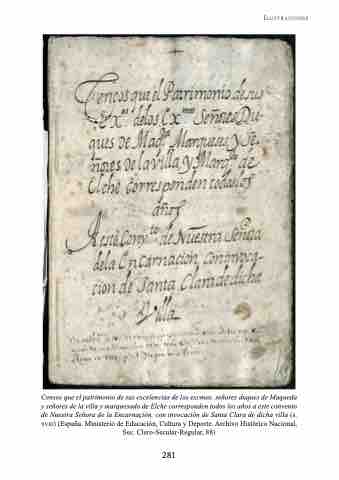 ILUSTRACIONES
Censos que el Patrimonio de sus
Ex.as de los Ex.mos Señores Du-
ques de Maq.da Marqueses, y Se-
ñores de la villa, y Marq.do de
Elche corresponden todos los
años
A este Conv.to de Nuestra Señora
dela Encarnacion, con invoca-
cion de Santa Clara de dicha
Villa
Censos que el patrimonio de sus excelencias de los excmos. señores duques de Maqueda
y señores de la villa y marquesado de Elche corresponden todos los años a este convento
de Nuestra Señora de la Encarnación, con invocación de Santa Clara de dicha villa (s.
XVIII) (España. Ministerio de Educación, Cultura y Deporte. Archivo Histórico Nacional,
Sec. Clero-Secular-Regular, 88)
281